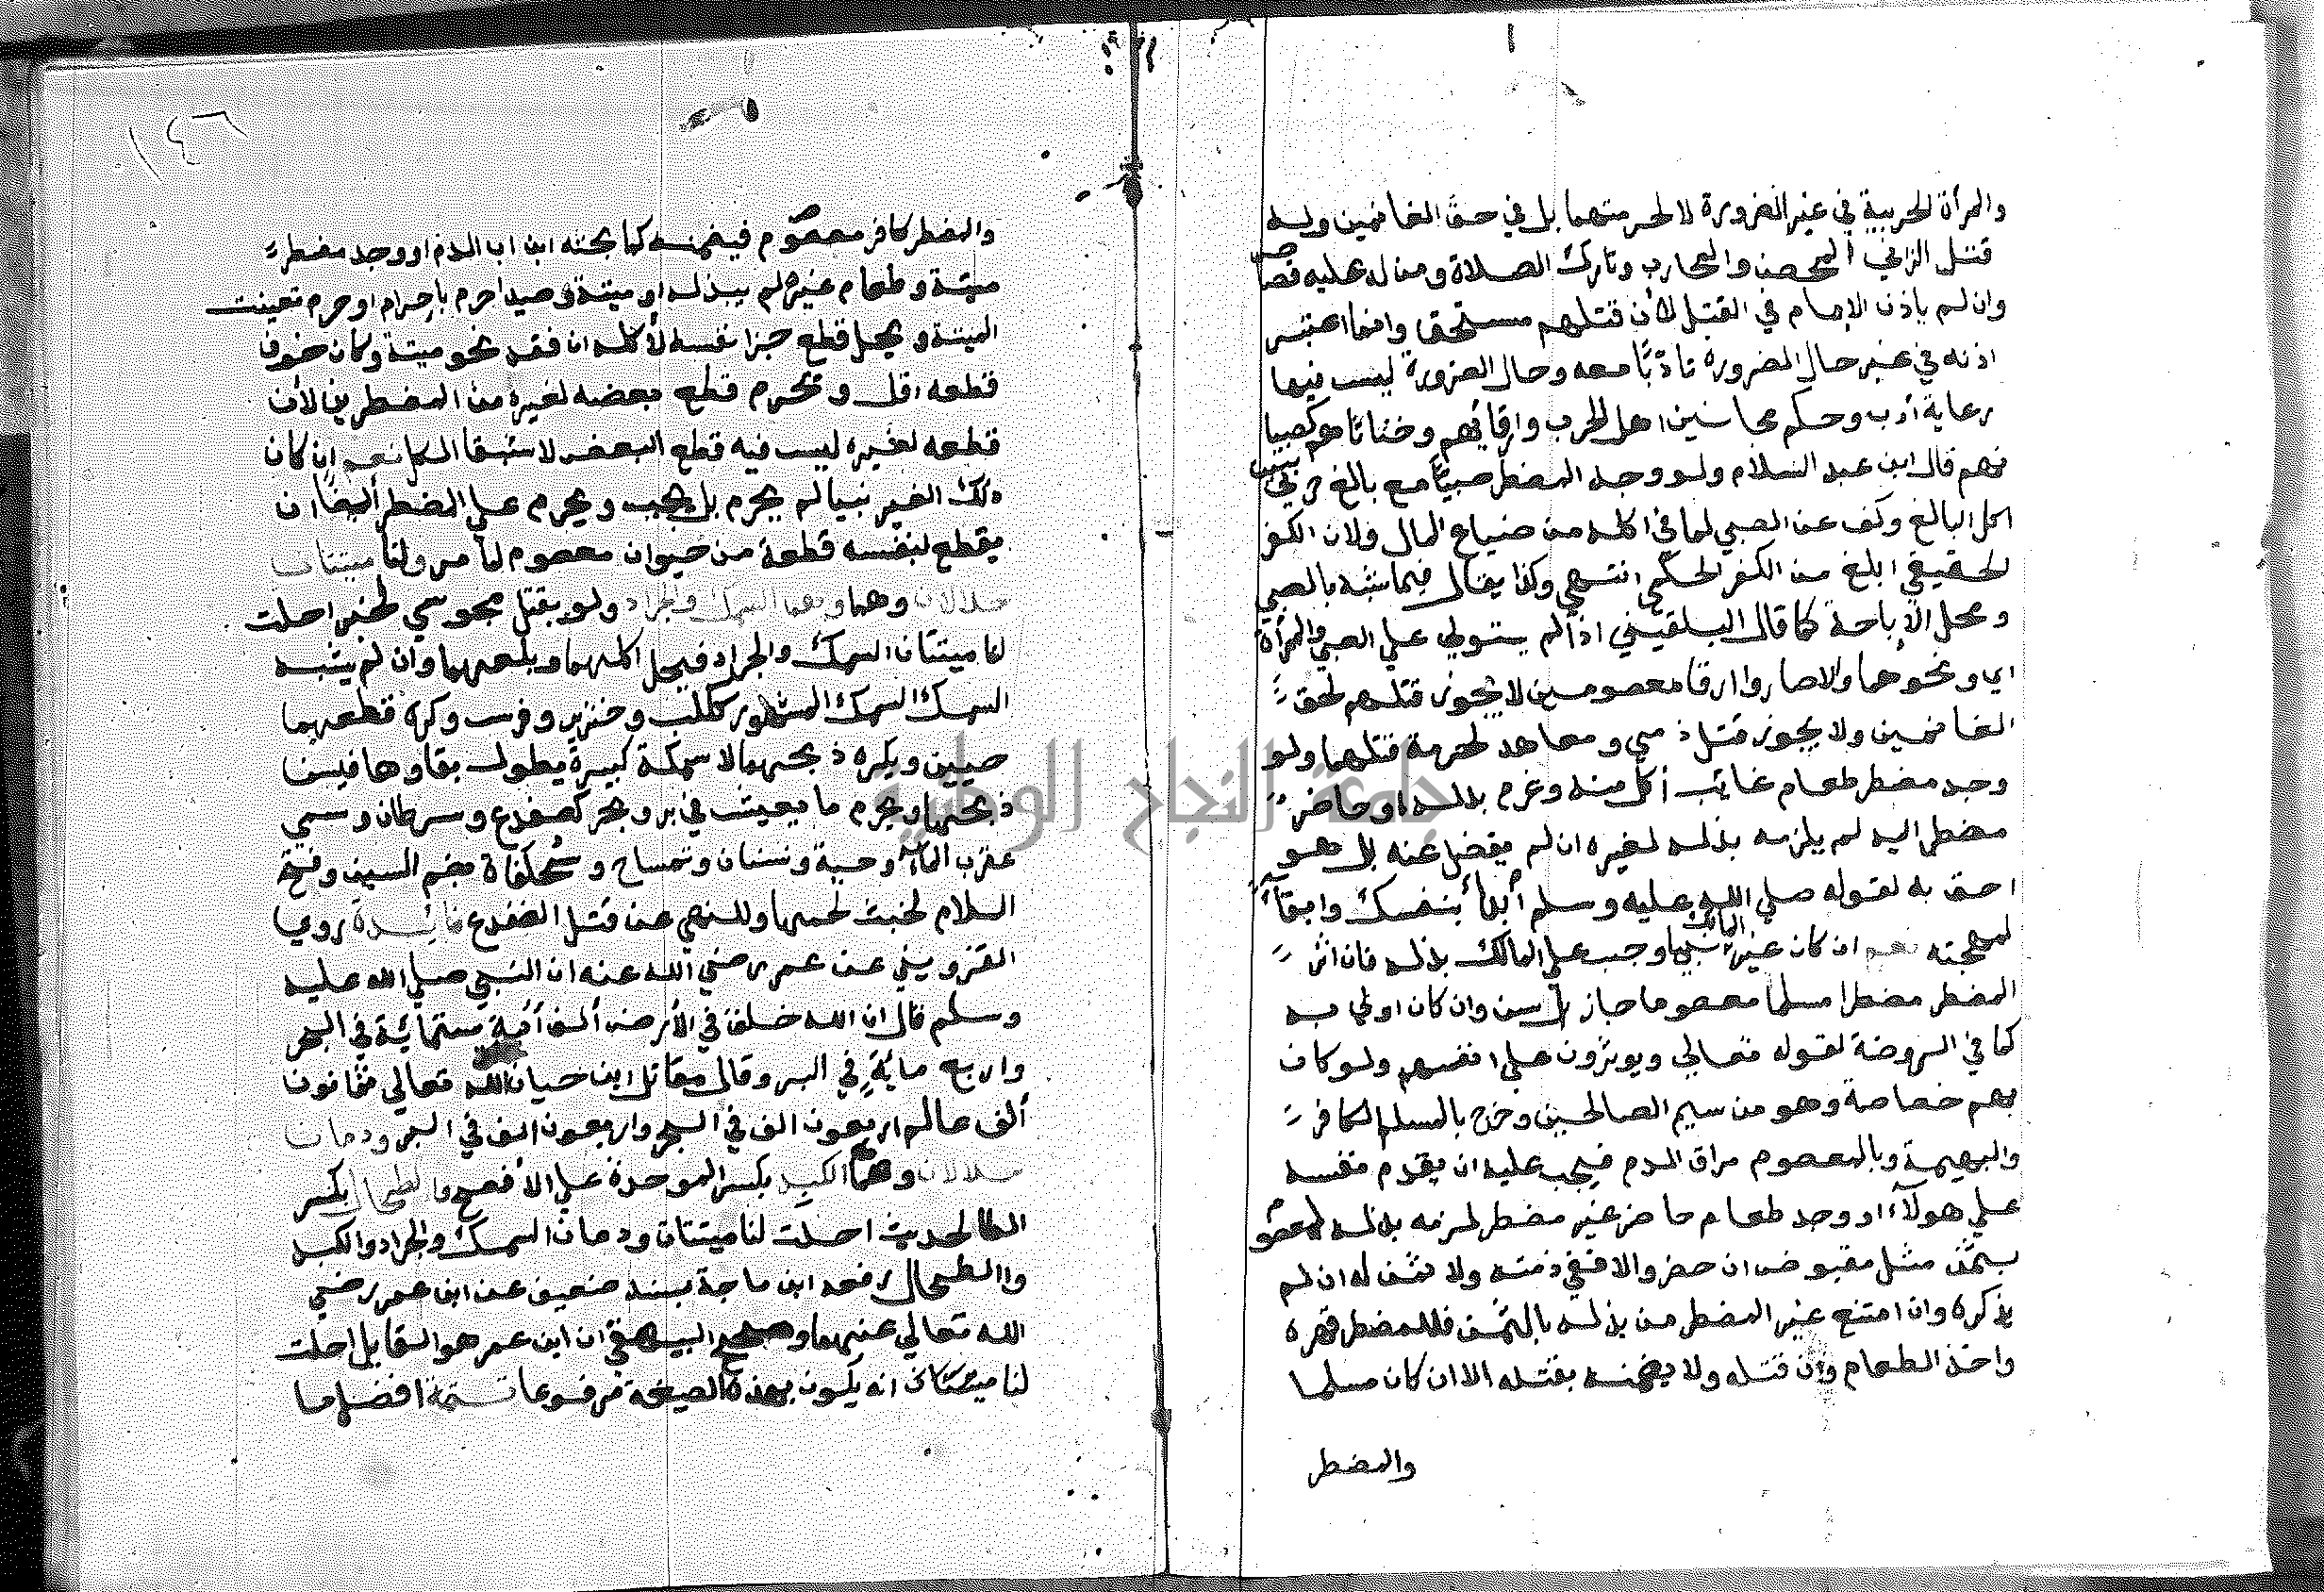 والمرأة الحربية في غير الضرورة لا لحرمتهما بل في حق الغانمين وله
قتل الزاني المحصن والمحارب وتارك الصلاة ومن له عليه قصاص
وان لم ياذن الإمام في القتل لأن قتلهم مستحق وانما اعتبر
اذنه في غير حال الضرورة تأدبًا معه وحال الضرورة ليست فيها
رعاية أدب وحكم مجانين اهل الحرب وارقائهم وخناثاهم كصبيا
نهم قال ابن عبد السلام ولو وجد المضطر صبيًا مع بالغ حربيين
اكل البالغ وكف عن الصبي لما في اكله من ضياع المال ولان الكفر
الحقيقي ابلغ من الكفر الحكمي انتهي وكذا يقال فيما شبه بالصبي
ومحل الإباحة كما قال البلقيني اذا لم يستولي علي الصبي والمرأة
اي ونحوهما والا صاروا ارقا معصومين لا يجوز قتلهم لحق
الغانمين ولا يجوز قتل ذمي ومعاهد لحرمة قتلهما ولو
وجد مضطر طعام غائب أكل منه وغرم بدله او حاضر
مضطر اليه لم يلزمه بذله لغيره ان لم يفضل عنه بل هو
احق به لقوله صلي الله عليه وسلم أبدأ بنفسك وابقآء
لمهجته نعم ان كان غير المالك نبيا وجب علي المالك بذله فان اثر
المضطر مضطرا مسلما معصوما جاز بل سن وان كان اولي به
كما في الروضة لقوله تعالي ويوثرون علي انفسهم ولو كان
بهم خصاصة وهو من سيم الصالحين وخرج بالمسلم الكافر
والبهيمة وبالمعصوم مراق الدم فيجب عليه ان يقدم نفسه
علي هولآء او وجد طعام حاضر غير مضطر لزمه بذله لمعصوم
بثمن مثل مقبوض ان حضر والا ففي ذمته ولا ثمن له ان لم
يذكره وان امتنع غير المضطر من بذله بالثمن فللمضطر قهره
واخذ الطعام وإن قتله ولا يضمنه بقتله الا ان كان مسلما
والمضطر
١٤٦
والمضطر كافر معصوم فيضمنه كما بحثه ابن اب الدم او وجد مضطر
ميتة وطعام غيره لم يبذله او ميتة وصيدا حرم باحرام او حرم تعينت
الميتة ويحل قطع جزا نفسه لأكله ان فقد نحو ميتة وكان خوف
قطعه اقل ويحرم قطع بعضه لغيره من المضطرين لأن
قطعه لغيره ليس فيه قطع البعض لاستبقا الكل نعم إن كان
ذلك الغير نبيا لم يحرم بل يجب ويحرم علي المضطر أيضًا ان
يقطع لنفسه قطعة من حيوان معصوم لما مر ولنا ميتتان
حلالان وهما وهما السمك والجراد ولو بقتل مجوسي لخبر احلت
لنا ميتتان السمك والجراد فيحل اكلهما وبلعهما وان لم يشبه
السمك السمك المشهور ككلب وخنزير وفرس وكره قطعهما
حيين ويكره ذبحهما الا سمكة كبيرة يطول بقاوها فيسن
ذبحها ويحرم ما يعيش في بر وبحر كضفدع وسرطان وسمي
عقرب المآء وحية ونسناس وتمساح وسُحلفاة بضم السين وفتح
السلام لخبث لحمها وللنهي عن قتل الضفدع فائدة روي
القزويني عن عمر رضي الله عنه ان النبي صلي الله عليه
وسلم قال ان الله خلق في الأرض ألف أمة ستمائة في البحر
واربع مائة في البر وقال مقاتل ابن حيان لله تعالي ثمانون
ألف عالم اربعون الف في البحر واربعون الف في البر ودمان
حلالان وهما الكبد بكسر الموحدة علي الأفصح والطحال بكسر
الطا لحديث احلت لنا ميتتان ودمان السمك والجراد والكبد
واالطحال رفعه ابن ماجة بسند ضعيف عن ابن عمر رضي
الله تعالي عنهما وصحح البيهقي ان ابن عمر هو القايل احلت
لنا ميتتان انه يكون بهذه الصيغة مرفوعا تتمة افضل ما
جامعة النجاح الوطنية